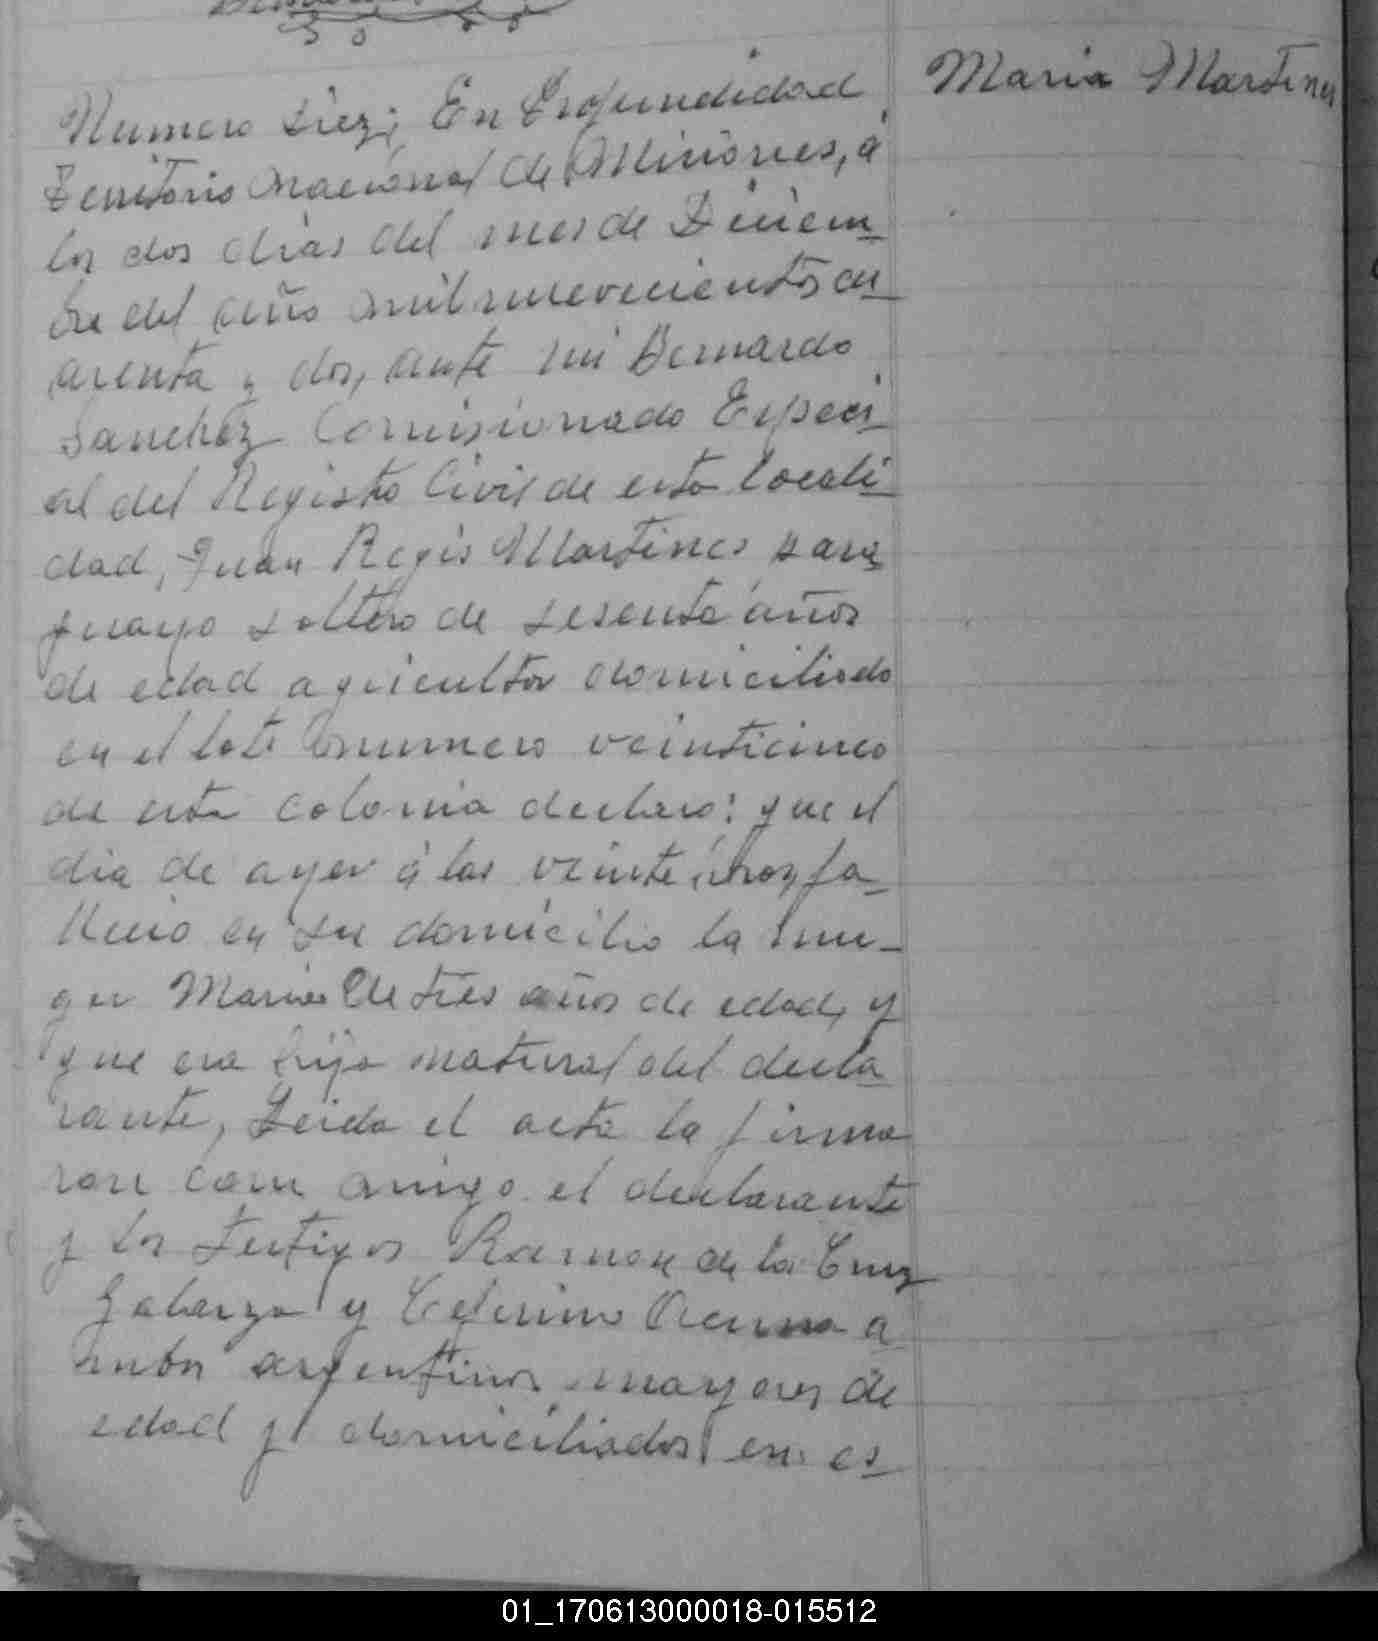 Maria Martines
Numero diez; En Profundidad
Territorio Nacional de Misiones, á
los dos dias del mes de Diciem
bre del año mil nuevecientos cu
arenta y dos, ante mi Bernardo
Sanchez Comisionado Especi
al del Registro Civil de esta locali
dad, Juan Regis Martines para
guayo soltero de sesenta años
de edad agricultor domiciliado
en el lote numero veinticinco
de esta colonia declaro: que el
dia de ayer á las veinte horas fa
llecio en su domicilio la mu-
ger Maria de tres años de edad, y
que era hija natural del decla
rante, Leida el acta la firma
ron com migo el declarante
y los testigos Ramon de la Cruz
Galarza y Ceferino Acuna a
mbos argentinos mayores de
edad y domiciliados en es
01_170613000018-015512